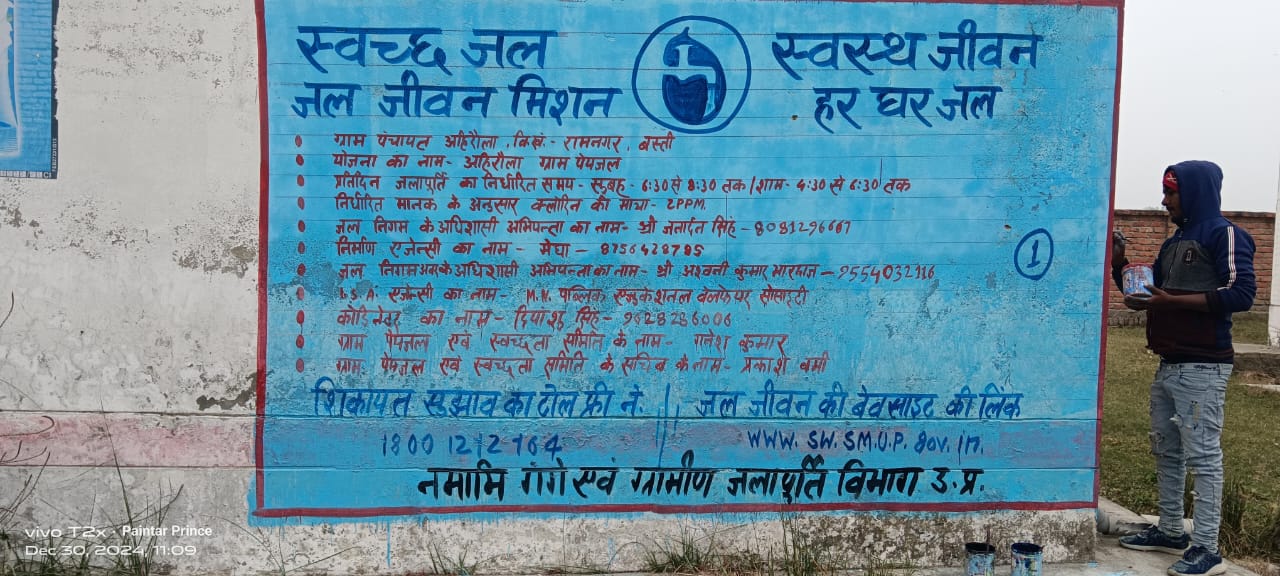 स्वच्छ जल स्वस्थ जीवन
जल जीवन मिशन हर घर जल
• ग्राम पंचायत अहिरौला, वि.खं.- रामनगर, बस्ती
• योजना का नाम- अहिरौला ग्राम पेयजल
• प्रतिदिन जलापूर्ति का निर्धारित समय- सुबह- 6:30 से 8:30 तक / शाम- 4:30 से 6:30 तक
• निर्धारित मानक के अनुसार क्लोरिन की मात्रा- 2PPM.
• जल निगम के अधिशासी अभियन्ता का नाम- श्री जनार्दन सिंह - 8081296667
• निर्माण एजेन्सी का नाम- मेघा - 8756428785
• जल निगम के अधिशासी अभियन्ता का नाम- श्री अश्वनी कुमार भारद्वाज -
• I.S.A. एजेन्सी का नाम- M.N. पब्लिक एजुकेशनल वेलफेयर सोसाइटी
• का नाम - सिंह- 9628286006
• ग्राम पेयजल एवं स्वच्छता समिति के नाम- कुमार
• ग्राम पेयजल एवं स्वच्छता समिति के सचिव के नाम- प्रकाश वर्मा
1
शिकायत सुझाव का टोल फ्री नं. || जल जीवन की बेवसाइट की लिंक
1800 1212 164 WWW. SW. SM.U.P. Gov. in.
नमामि गंगे एवं ग्रामीण जलापूर्ति विभाग उ.प्र.
vivo T2x · Paintar Prince
Dec 30, 2024, 11:09